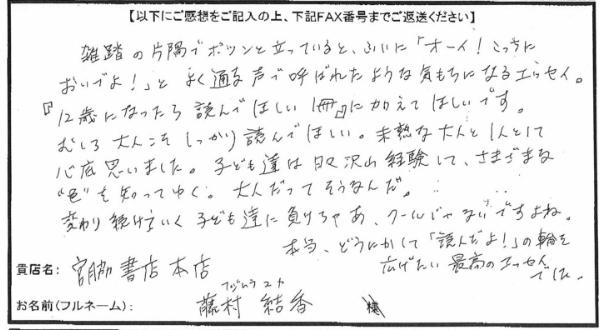 【以下にご感想をご記入の上、下記FAX番号までご返送ください】
雑踏の片隅でポツンと立っていると、ふいに「オーイ！こっちに
おいでよ！」と よく通る声で呼ばれたような気もちになるエッセイ。
『12歳になったら読んでほしい1冊』に加えてほしいです。
むしろ大人こそしっかり読んでほしい。未熟な大人と1人として
心底思いました。子ども達は日々沢山経験して、さまざまな
"色"を知ってゆく。大人だってそうなんだ。
変わり続けていく子ども達に負けちゃあ、クールじゃないですよね。
本当、どうにかして「読んだよ！」の輪を
広げたい最高のエッセイ
でした。
貴店名： 宮脇書店本店
フジムラ ユカ
お名前(フルネーム)： 藤村 結香 様